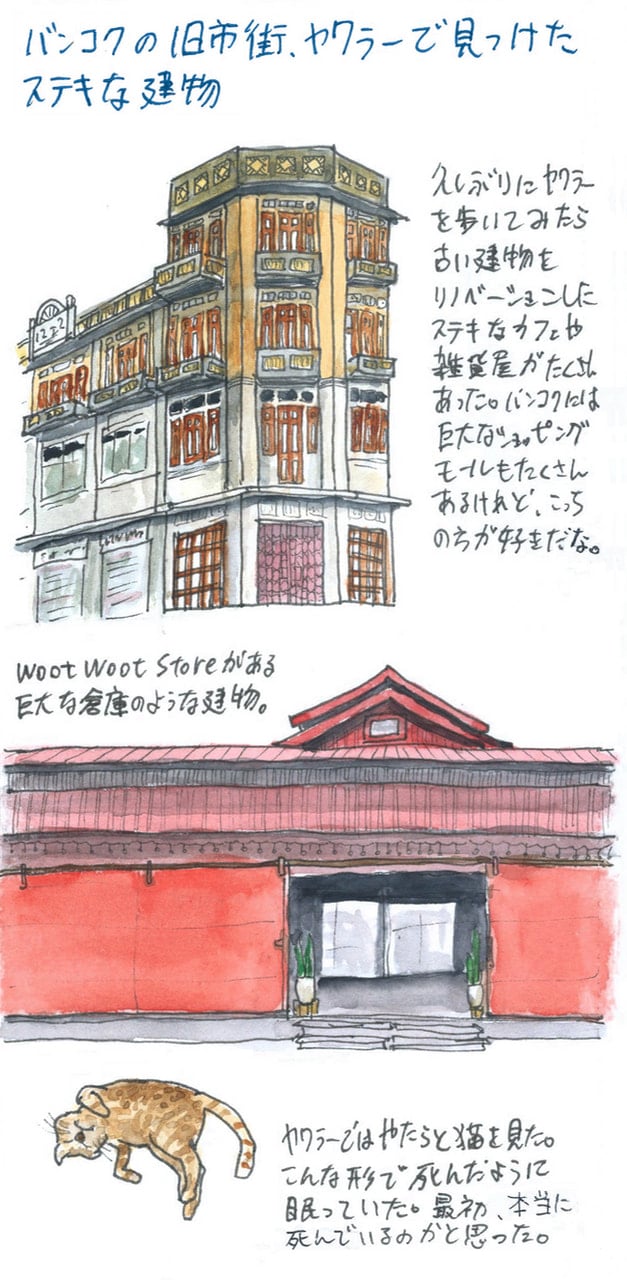 バンコクの旧市街、ヤワラーで見つけた
ステキな建物
久しぶりにヤワラー
を歩いてみたら
古い建物を
リノベーションした
ステキなカフェや
雑貨屋がたくさん
あった。バンコクには
巨大なショッピング
モールもたくさん
あるけれど、こっち
の方が好きだな。
woot woot Storeがある
巨大な倉庫のような建物。
ヤワラーではやたらと猫を見た。
こんな形で死んだように
眠っていた。最初、本当に
死んでいるのかと思った。